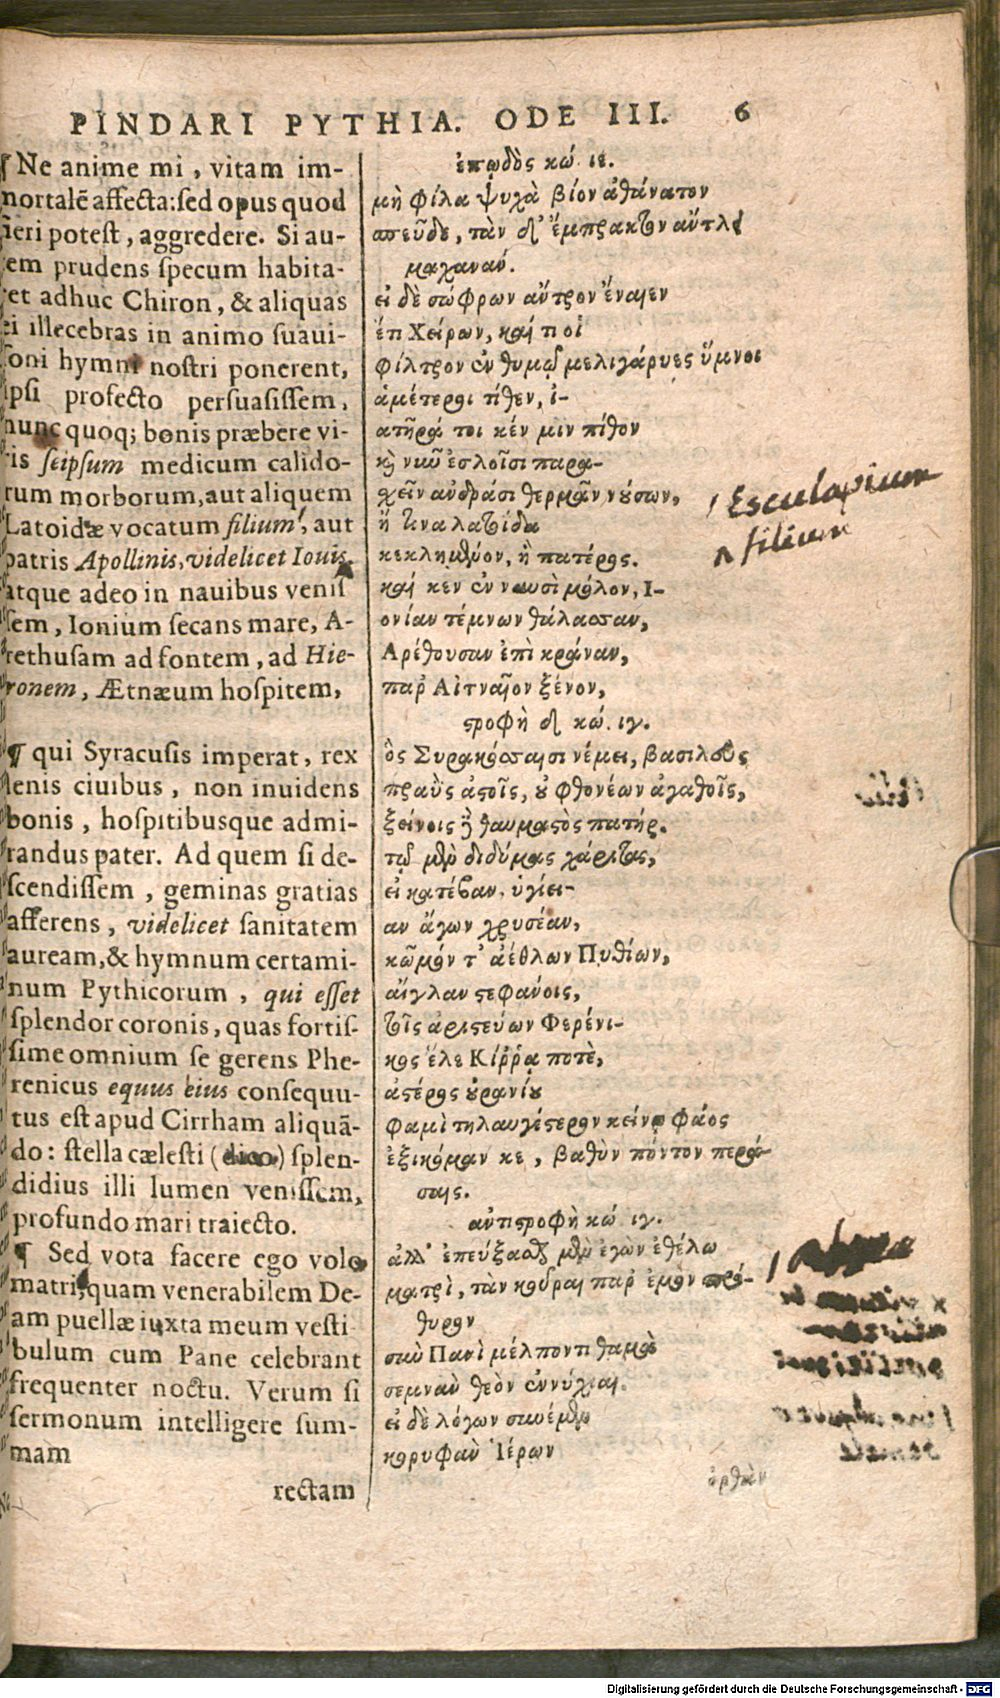 PINDARI PYTHIA. ODE III. 6
¶ Ne anime mi, vitam im-
mortalē affecta: sed opus quod
fieri potest, aggredere. Si au-
tem prudens specum habita-
ret adhuc Chiron, & aliquas
ei illecebras in animo suaui-
soni hymni nostri ponerent,
ipsi profecto persuasissem,
nunc quoq; bonis præbere vi-
ris seipsum medicum calido-
rum morborum, aut aliquem
Latoidæ vocatum filium, aut
patris Apollinis, videlicet Iouis.
atque adeo in nauibus venis
sem, Ionium secans mare, A-
rethusam ad fontem, ad Hie-
ronem, Ætnæum hospitem,
¶ qui Syracusis imperat, rex
lenis ciuibus, non inuidens
bonis, hospitibusque admi-
randus pater. Ad quem si de-
scendissem, geminas gratias
afferens, videlicet sanitatem
auream, & hymnum certami-
num Pythicorum, qui esset
splendor coronis, quas fortis-
sime omnium se gerens Phe-
renicus equus eius consequu-
tus est apud Cirrham aliquā-
do: stella cælesti (dico) splen-
didius illi lumen venissem,
profundo mari traiecto.
¶ Sed vota facere ego volo
matri, quam venerabilem De-
am puellæ iuxta meum vesti
bulum cum Pane celebrant
frequenter noctu. Verum si
sermonum intelligere sum-
mam
rectam
ἐπῳδὸς κώ. ιε.
μὴ φίλα ψυχὰ βίον ἀθάνατον
σπεῦδε, τὰν δ' ἔμπρακτον ἄντλει
μαχανάν.
εἰ δὲ σώφρων ἄντρον ἔναιεν
ἔτι Χείρων, καί τι οἱ
φίλτρον ἐν θυμῷ μελιγάρυες ὕμνοι
ἁμέτεροι τίθεν, ἰ-
ατῆρά τοι κέν μιν πίθον
καὶ νῦν ἐσλοῖσι παρα-
χεῖν ἀνδράσι θερμᾶν νόσων,
ἤ τινα λατοίδα
κεκλημένον, ἢ πατέρος.
καί κεν ἐν ναυσὶ μόλον, Ι-
ονίαν τέμνων θάλασσαν,
Αρέθουσαν ἐπὶ κράναν,
παρ' Αἰτναῖον ξένον,
στροφὴ δ. κώ. ιγ.
ὃς Συρακόσσαισι νέμει, βασιλεὺς
πραῢς ἀστοῖς, οὐ φθονέων ἀγαθοῖς,
ξείνοις δὲ θαυμαστὸς πατήρ.
τῷ μὲν διδύμας χάριτας,
εἰ κατέβαν, ὑγίει-
αν ἄγων χρυσέαν,
κῶμόν τ' ἀέθλων Πυθίων,
αἴγλαν στεφάνοις,
τοῖς ἀριστεύων Φερένι-
κος ἕλε Κίῤῥᾳ ποτὲ,
ἀστέρος οὐρανίου
φαμὶ τηλαυγέστερον κείνῳ φάος
ἐξικόμαν κε, βαθὺν πόντον περά-
σαις.
ἀντιστροφὴ κώ. ιγ.
ἀλλ' ἐπεύξασθαι μὲν ἐγὼν ἐθέλω
ματρὶ, τὰν κοῦραι παρ' ἐμὸν πρό-
θυρον
σὺν Πανὶ μέλπονται θαμὰ
σεμνὰν θεὸν ἐννύχιαι.
εἰ δὲ λόγων συνέμεν
κορυφὰν Ἱέρων
ὀρθὰν
Esculapium
filium
Digitalisierung gefördert durch die Deutsche Forschungsgemeinschaft - DFG